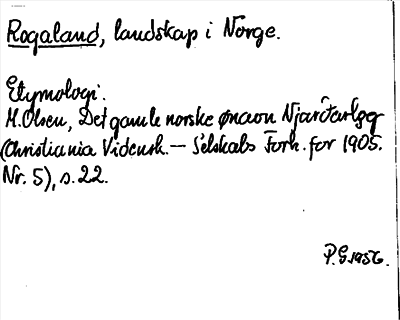 Rogaland, landskap i Norge.
Etymologi.
M. Olsen, Det gamle norske ønavn Njarðarlǫg
(Christiania Vidensk.-Selskabs Forh. for 1905.
Nr. 5), s. 22.
P.G. 1956.